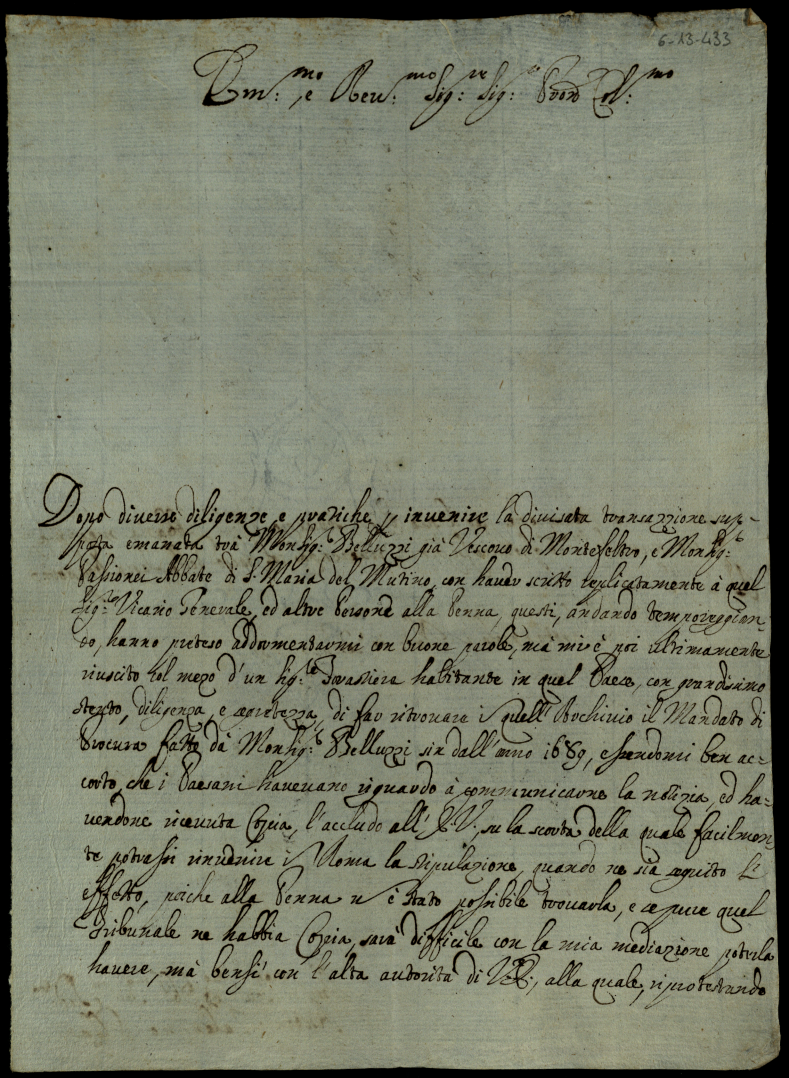 6-13-433
Em:mo, e Reu:mo Sig:re Sig:re Pron Col:mo
Dopo diuerse diligenze e pratiche p inuenire la diuisata transazzione sup-
posta emanata trà Monsig:r Belluzzi già Vescouo di Montefeltro, e Monsig:r
Passionei Abbate di S. Maria del Mutino, con hauer scritto replicatamente à quel
Sig:re Vicario Generale, ed altre Persone alla Penna, questi, andando temporeggian-
do, hanno preteso addormentarmi con buone parole, mà mi è poi ultimamente
riuscito col mezo d'un Sig:re forastiero habitante in quel Paese, con grandissimo
stento, diligenza, e segretezza, di far ritrouare i quell'Archiuio il Mandato di
Procura fatto dà Monsig:r Belluzzi sin dall'anno 1689, essendomi ben ac-
corto, che i Paesani haueuano riguardo à communicarne la notizia, ed ha-
uendone riceuuta Copia, l'accludo all'E.V., su la scorta della quale facilmen-
te potrassi inuenire i Roma la stipulazione, quando ne sia seguito l'
effetto, poiche alla Penna n è stato possibile trouarla, e se pure quel
Tribunale ne habbia Copia, sarà difficile con la mia mediazione poterla
hauere, mà bensì con l'alta autorità di V.E., alla quale, riprotestando